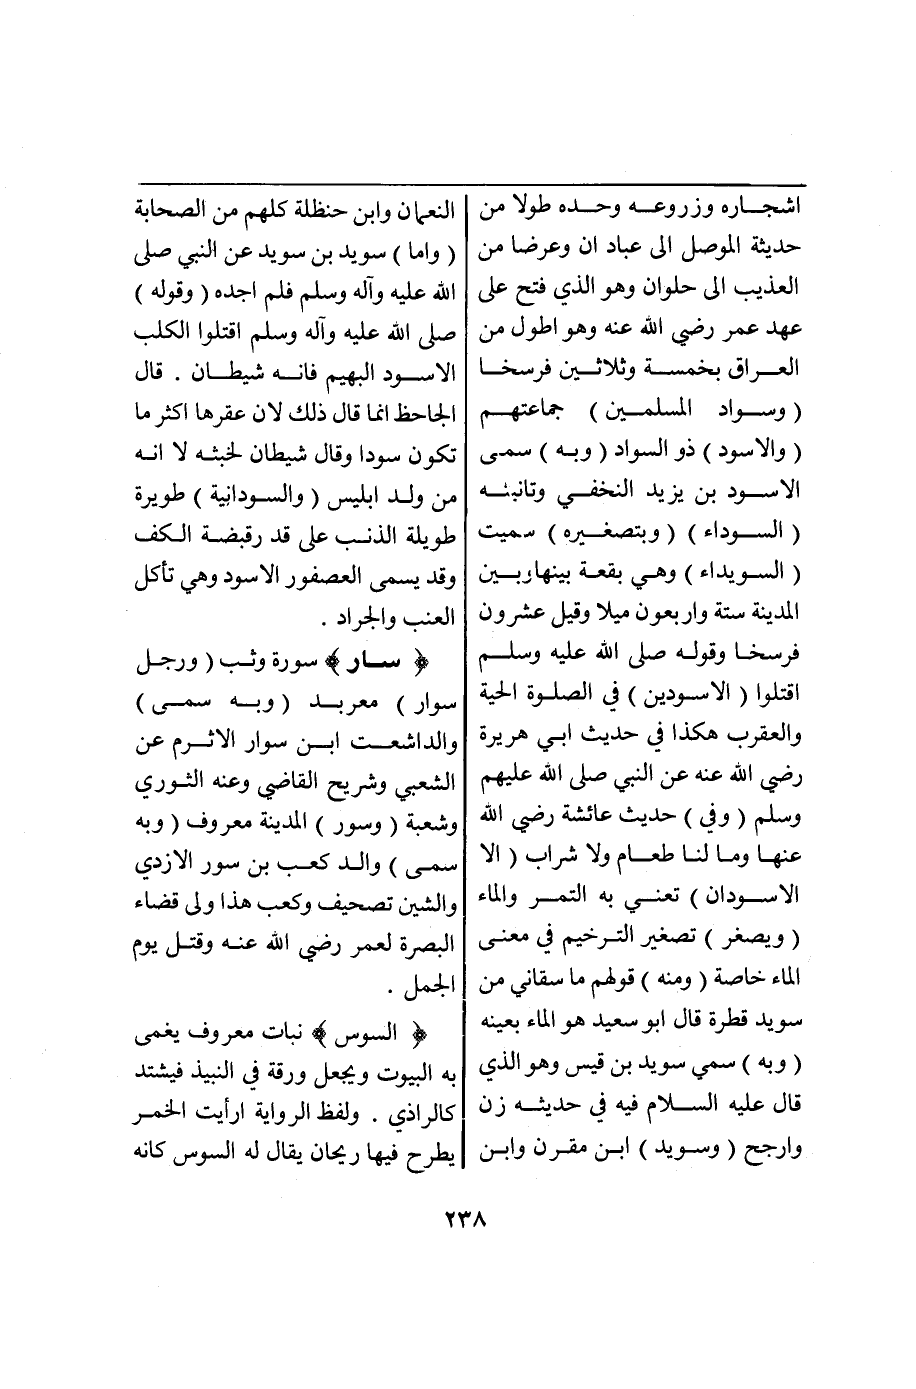 اشجاره وزروعه وحده طولا من
حديثة الموصل الى عباد ان وعرضا من
العذيب الى حلوان وهو الذي فتح على
عهد عمر رضي الله عنه وهو اطول من
العراق بخمسة وثلاثين فرسخا
( وسواد المسلمين ) جماعتهم
( والاسود ) ذو السواد ( وبه ) سمى
الاسود بن يزيد النخفي وتانيثه
( السوداء ) ( وبتصغيره ) سميت
( السويداء ) وهي بقعة بينهاربين
المدينة ستة واربعون ميلا وقيل عشرون
فرسخا وقوله صلى الله عليه وسلم
اقتلوا ( الاسودين ) في الصلوة الحية
والعقرب هكذا في حديث ابي هريرة
رضي الله عنه عن النبي صلى الله عليهم
وسلم ( وفي ) حديث عائشة رضي الله
عنها وما لنا طعام ولا شراب ( الا
الاسودان ) تعني به التمر والماء
( ويصغر ) تصغير الترخيم في معنى
الماء خاصة ( ومنه ) قولهم ما سقاني من
سويد قطرة قال ابو سعيد هو الماء بعينه
( وبه ) سمي سويد بن قيس وهو الذي
قال عليه السلام فيه في حديثه زن
وارجح ( وسويد ) ابن مقرن وابن
النعمان وابن حنظلة كلهم من الصحابة
( واما ) سويد بن سويد عن النبي صلى
الله عليه وآله وسلم فلم اجده ( وقوله )
صلى الله عليه وآله وسلم اقتلوا الكلب
الاسود البهيم فانه شيطان . قال
الجاحظ انما قال ذلك لان عقرها اكثر ما
تكون سودا وقال شيطان لخبثه لا انه
من ولد ابليس ( والسودانية ) طويرة
طويلة الذنب على قد رقبضة الكف
وقد يسمى العصفور الاسود وهي تأكل
العنب والجراد .
﴿ سار ﴾ سورة وثب ( ورجل
سوار ) معربد ( وبه سمى )
والداشعت ابن سوار الاثرم عن
الشعبي وشريح القاضي وعنه الثوري
وشعبة ( وسور ) المدينة معروف ( وبه
سمى ) والد كعب بن سور الازدي
والشين تصحيف وكعب هذا ولى قضاء
البصرة لعمر رضي الله عنه وقتل يوم
الجمل .
﴿ السوس ﴾ نبات معروف يغمى
به البيوت ويجعل ورقة في النبيذ فيشتد
كالراذي . ولفظ الرواية ارأيت الخمر
يطرح فيها ريحان يقال له السوس كانه
٢٣٨